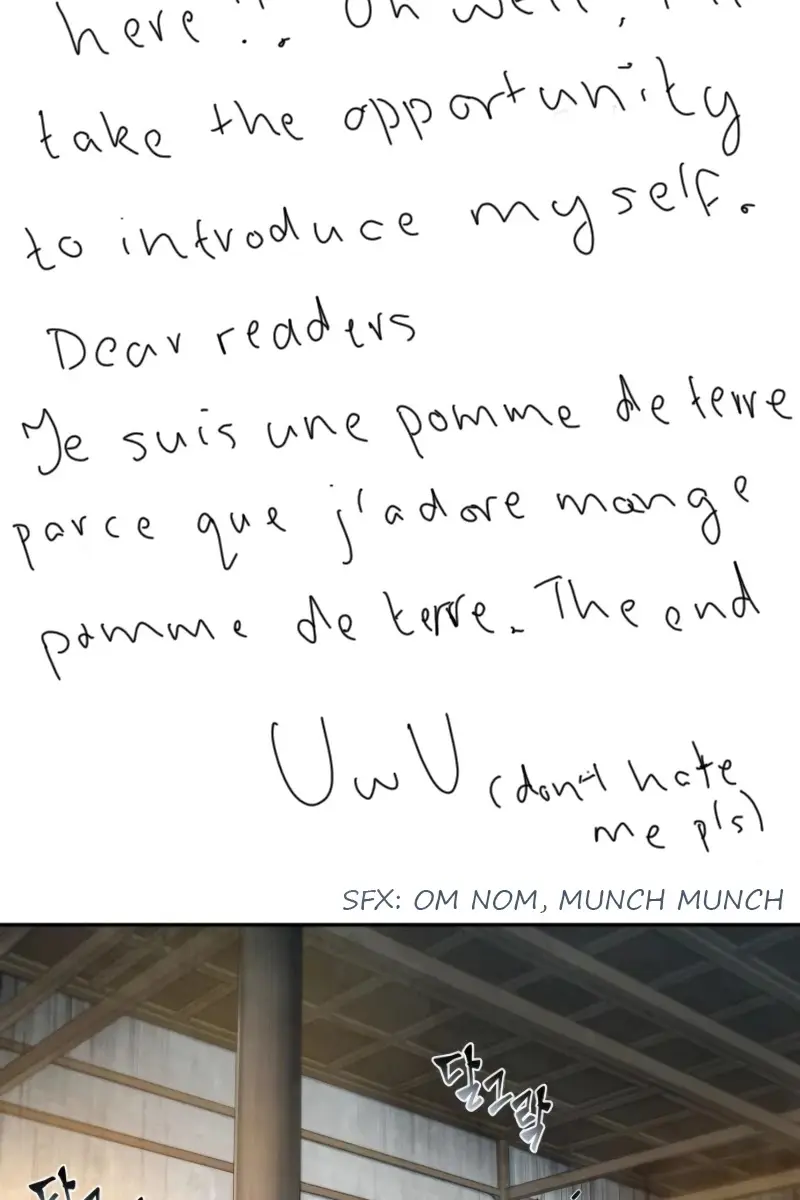 here!! Oh well, I'll
take the opportunity
to introduce myself.
Dear readers
Je suis une pomme de terre
parce que j'adore mange
pomme de terre. The end
UwU (don't hate
me pls)
SFX: OM NOM, MUNCH MUNCH
달그락